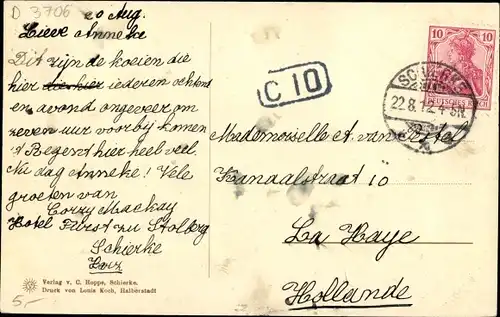 D 3706
20 Aug.
Lieve Anneke
Dit zijn de koeien die
hier die hier iederen ochtend
en avond ongeveer om
zeven uur voorbij komen
't Regent hier heel veel.
Nu dag Anneke! Vele
groeten van
Corry Mackay
Hotel Fürst zu Stolberg
Schierke
Harz
Verlag v. C. Hoppe, Schierke.
Druck von Louis Koch, Halberstadt
5,-
C 10
10 10
DEUTSCHES REICH
SCHIERKE
22.8.12. 4-5N.
Mademoiselle A. van
Kanaalstraat 10
La Haye
Hollande